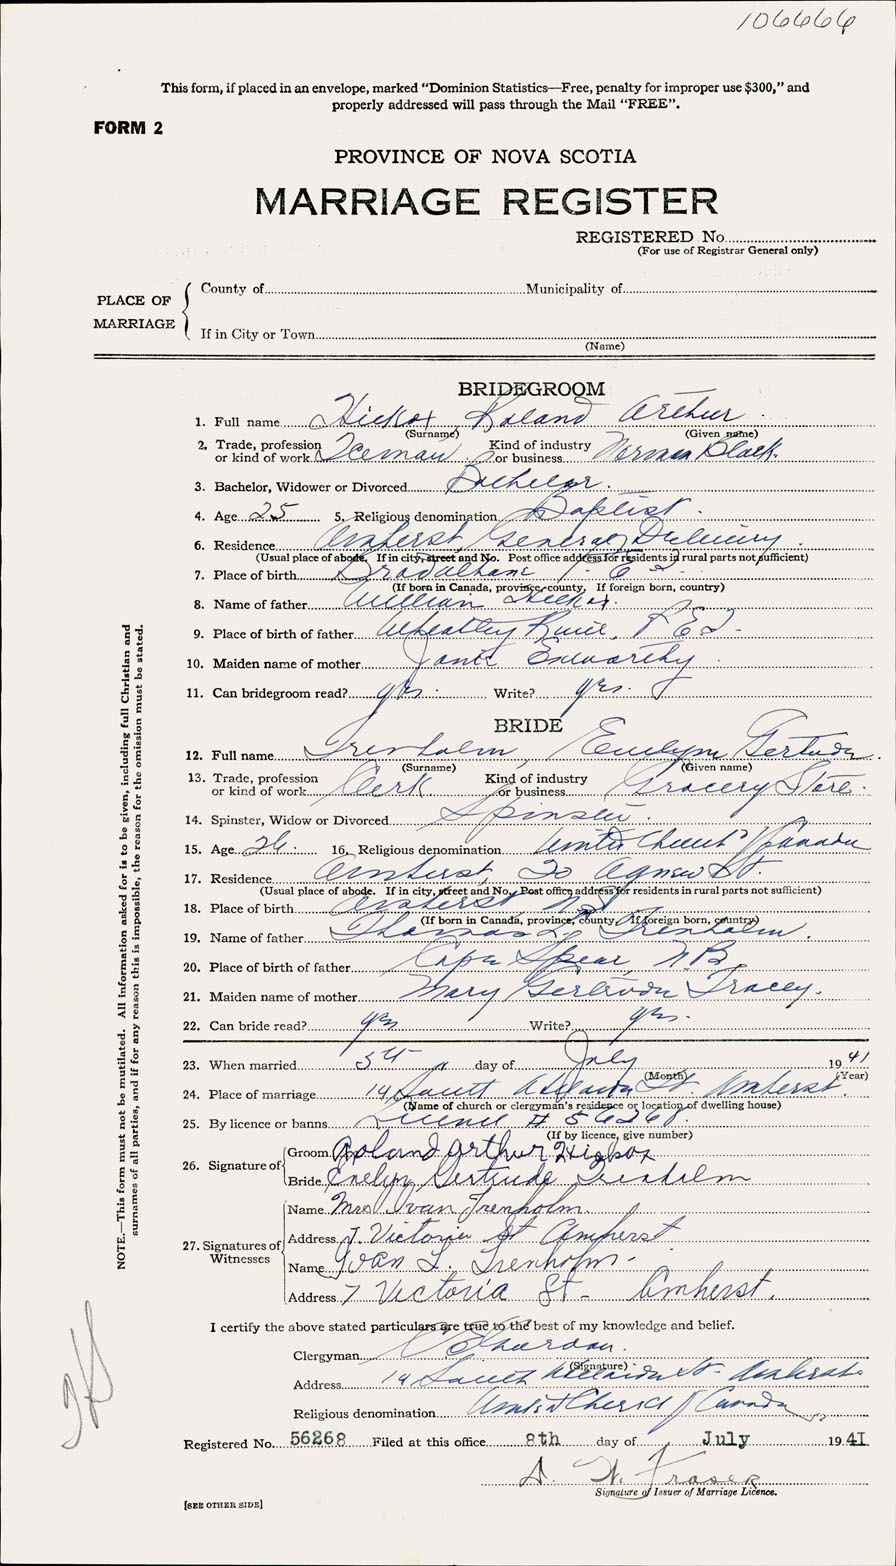 106666
This form, if placed in an envelope, marked "Dominion Statistics—Free, penalty for improper use $300," and
properly addressed will pass through the Mail "FREE".
FORM 2
PROVINCE OF NOVA SCOTIA
MARRIAGE REGISTER
REGISTERED No.
(For use of Registrar General only)
PLACE OF MARRIAGE
County of Municipality of
If in City or Town
(Name)
BRIDEGROOM
1. Full name Hickox Roland Arthur
(Surname) (Given name)
2. Trade, profession or kind of work Iceman Kind of industry or business Norman Black
3. Bachelor, Widower or Divorced Bachelor.
4. Age 25 5. Religious denomination Baptist.
6. Residence Amherst, General Delivery.
(Usual place of abode. If in city, street and No. Post office address for residents in rural parts not sufficient)
7. Place of birth P E I
(If born in Canada, province, county, If foreign born, country)
8. Name of father William Hickox.
9. Place of birth of father Wheatley River, P.E.I.
10. Maiden name of mother Exworthy
11. Can bridegroom read? yes. Write? yes.
BRIDE
12. Full name Trenholm, Evelyn Gertrude.
(Surname) (Given name)
13. Trade, profession or kind of work Clerk Kind of industry or business Grocery Store.
14. Spinster, Widow or Divorced Spinster.
15. Age 26. 16. Religious denomination United Church of Canada
17. Residence Amherst, 20 Agnew St.
(Usual place of abode. If in city, street and No. Post office address for residents in rural parts not sufficient)
18. Place of birth Amherst N.S.
(If born in Canada, province, county, If foreign born, country)
19. Name of father Thomas Trenholm.
20. Place of birth of father Cape Spear, N.B.
21. Maiden name of mother Mary Gertrude Tracey.
22. Can bride read? yes Write? yes.
23. When married 5th day of July 1941
(Month) (Year)
24. Place of marriage 14 South Adelaide St. Amherst.
(Name of church or clergyman's residence or location of dwelling house)
25. By licence or banns License # 56268.
(If by licence, give number)
26. Signature of
Groom Roland Arthur Hickox
Bride Evelyn Gertrude Trenholm
27. Signatures of Witnesses
Name Mrs Ivan Trenholm.
Address 7 Victoria St Amherst
Name Ivan L. Trenholm.
Address 7 Victoria St- Amherst.
I certify the above stated particulars are true to the best of my knowledge and belief.
Clergyman
(Signature)
Address 14 South Adelaide St- Amherst
Religious denomination United Church of Canada
Registered No. 56268 Filed at this office 8th day of July 1941
A. W. Fraser
Signature of Issuer of Marriage Licence.
[SEE OTHER SIDE]
NOTE.—This form must not be mutilated. All information asked for is to be given, including full Christian and
surnames of all parties, and if for any reason this is impossible, the reason for the omission must be stated.